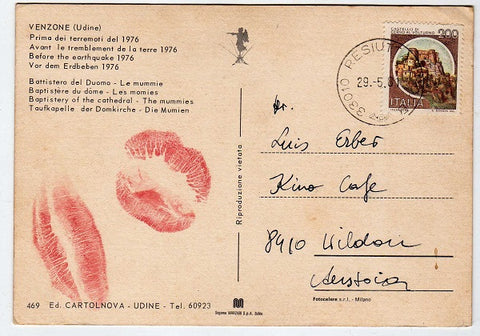 VENZONE (Udine)
Prima dei terremoti del 1976
Avant le tremblement de la terre 1976
Before the earthquake 1976
Vor dem Erdbeben 1976
Battistero del Duomo - Le mummie
Baptistère du dôme - Les momies
Baptistery of the cathedral - The mummies
Taufkapelle der Domkirche - Die Mumien
Riproduzione vietata
469 Ed. CARTOLNOVA - UDINE - Tel. 60923
200
ITALIA
33010 RESIUT
29.-5.8
Luis Erber
Kino Cafe
8410 Wildon
Fotocolore s.r.l. - Milano